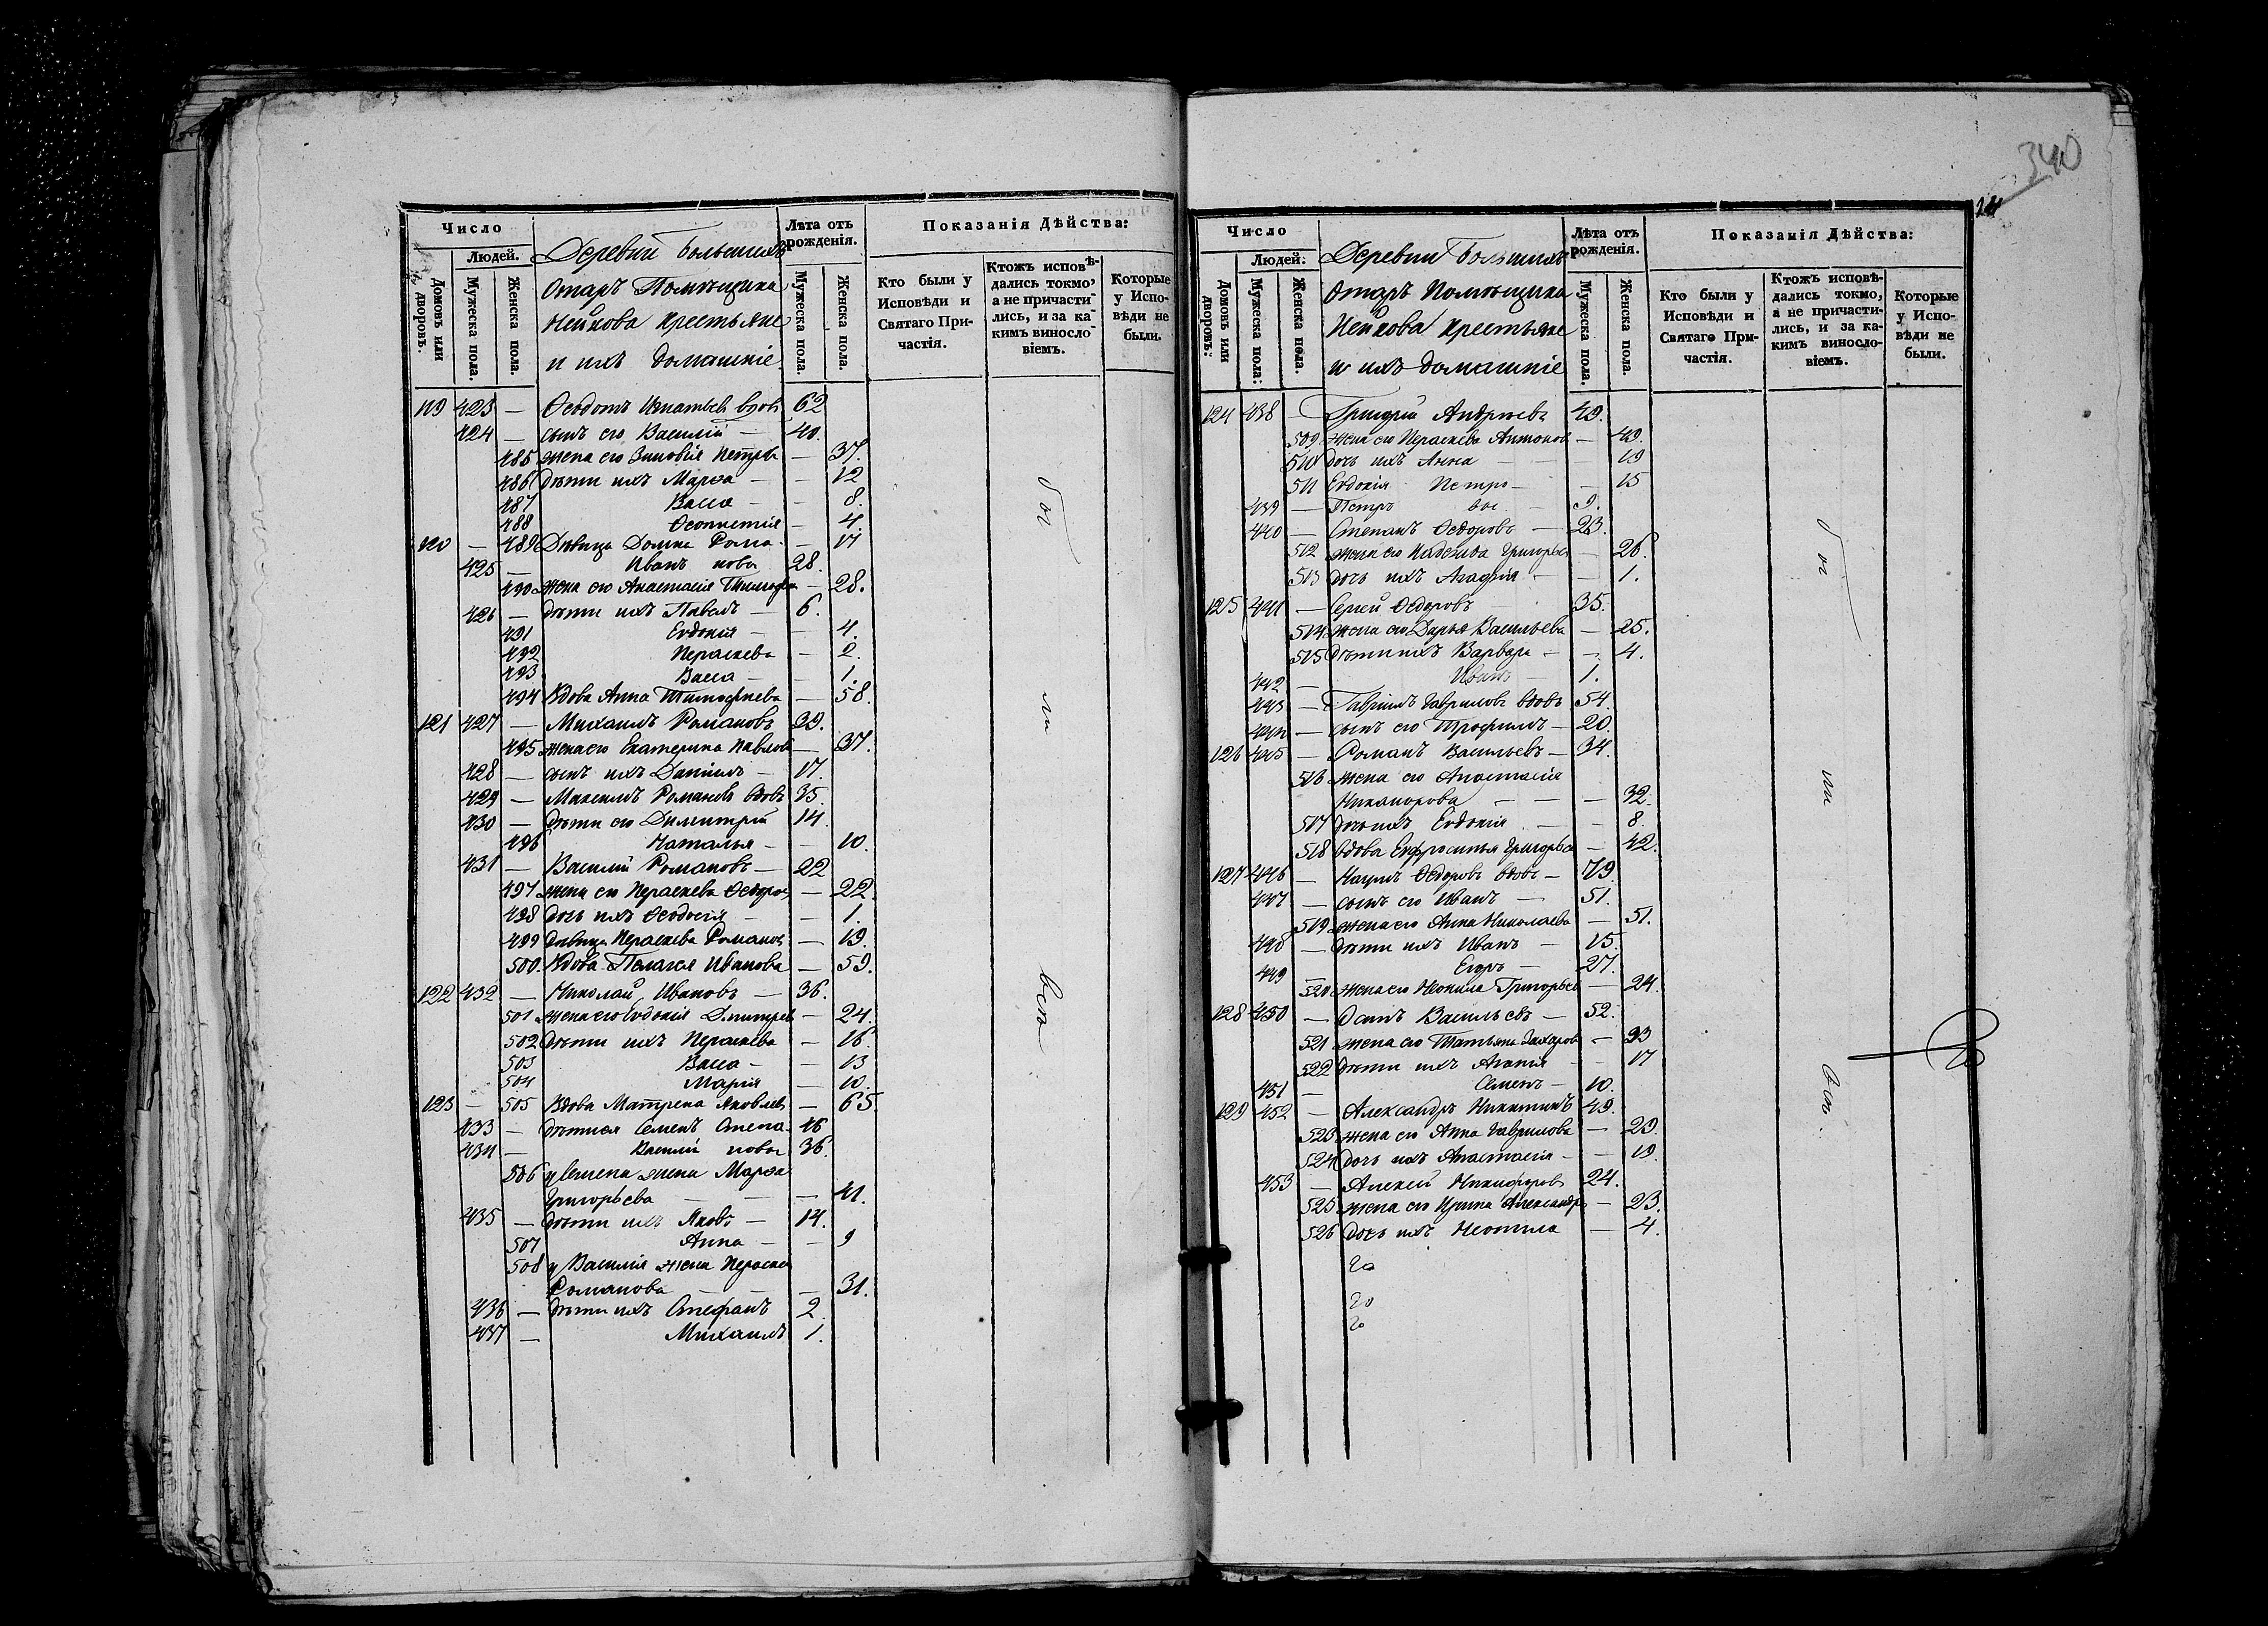 Число
Людей.
Домовъ или дворовъ.
Мужеска пола.
Женска пола.
Деревни Большихъ
Отаръ Помѣщика
Нейкова крестьяне
и ихъ домашніе
Лѣта отъ рожденія.
Мужеска пола.
Женска пола.
Показанія Дѣйства:
Кто были у Исповѣди и Святаго Причастія.
Ктожъ исповѣдались токмо, а не причастились, и за какимъ винословіемъ.
Которые у Исповѣди не были.
119 423 — Ѳеодотъ Игнатьевъ вдовъ 62
424 — сынъ его Василій — 40.
485 жена его Зиновія Петрова — 37.
486 дѣти ихъ Марѳа — — 12
487 Васса — — 8.
488 Ѳеоктистія — 4.
120 — 489 Дѣвица Домна Рома- — 17
425 — Иванъ новы 28.
490 жена его Анастасія Тимофеева — 28.
426 — дѣти ихъ Павелъ — 6.
491 Евдокія — — 4.
492 Пераскева — 2.
493 Васса — — 1.
494 Вдова Анна Тимофѣева — 58.
121 427 — Михаилъ Романовъ 39.
495 жена его Екатерина Павлова — 37.
428 — сынъ ихъ Даніилъ — 17.
429 — Максимъ Романовъ вдовъ 35.
430 — дѣти его Димитрій 14.
496 Наталья — — 10.
431 — Василій Романовъ — 22
497 жена его Пераскева Ѳедоров — 22.
498 дочь ихъ Ѳеодосія — — 1.
499 дѣвица Пераскева Романов — 19.
500. Вдова Пелагея Иванова — 59.
122 432 — Николай Ивановъ — 36.
501 жена его Евдокія Дмитрев — 24.
502 дѣти ихъ Пераскева — 16.
503 Васса — — 13
504 Марія — 10.
123 — 505 Вдова Матрена Яковлев — 65
433 — дѣти ея Семенъ Степа- 46
434 — Василій новы 36.
506 у Семена жена Марѳа
Григорьева — — — 41.
435 — дѣти ихъ Яковъ — 14.
507 Анна — — 9
508 у Василія жена Пераскев
Романова — — — 31.
436 — дѣти ихъ Стефанъ 2.
437 — Михаилъ 1.
бы
ли
всѣ
340
Число
Людей.
Домовъ или дворовъ.
Мужеска пола.
Женска пола.
Деревни Большихъ
Отаръ Помѣщика
Нейкова крестьяне
и ихъ домашніе
Лѣта отъ рожденія.
Мужеска пола.
Женска пола.
Показанія Дѣйства:
Кто были у Исповѣди и Святаго Причастія.
Ктожъ исповѣдались токмо, а не причастились, и за какимъ винословіемъ.
Которые у Исповѣди не были.
124 438 — Григорій Андреевъ 49.
509 жена его Пераскева Антонов — 49.
510 дочь ихъ Анна — — — 19
511 Евдокія Петро- — 15
439 — Петръ вы — 9.
440 — Степанъ Ѳедоровъ — 23.
512 жена его Надежда Григорьев — 26.
513 дочь ихъ Агафія — — 1.
125 441 — Сергей Ѳедоровъ 35.
514 жена его Дарья Васильева — 25.
515 дѣти ихъ Варвара — — 4.
442 — Иванъ — 1.
443 — Гавріилъ Гавриловъ вдовъ 54.
444 — сынъ его Трофимъ — 20.
126 445 — Романъ Васильевъ — 34.
516 жена его Анастасія
Никанорова — — — 32.
517 дочь ихъ Евдокія — — 8.
518 вдова Евфросинья Григорьев — 42.
127 446 — Наумъ Ѳедоровъ вдовъ — 79
447 — сынъ его Иванъ — 51.
519 жена его Анна Николаева — 51.
448 — дѣти ихъ Иванъ — 15.
449 — Егоръ — 27.
520 жена его Неонила Григорьев — 24.
128 450 — Осипъ Васильевъ — 52.
521 жена его Татьяна Захаров — 33
522 дѣти ихъ Агапія — — 17
451 — Семенъ — 10.
129 452 — Александръ Никитинъ 49.
523 жена его Анна Гаврилова — 29.
524 дочь ихъ Анастасія — — 19.
453 — Алексей Никифоровъ 24.
525 жена его Ирина Александр — 23.
526 дочь ихъ Неонила — 4.
бы
ли
всѣ